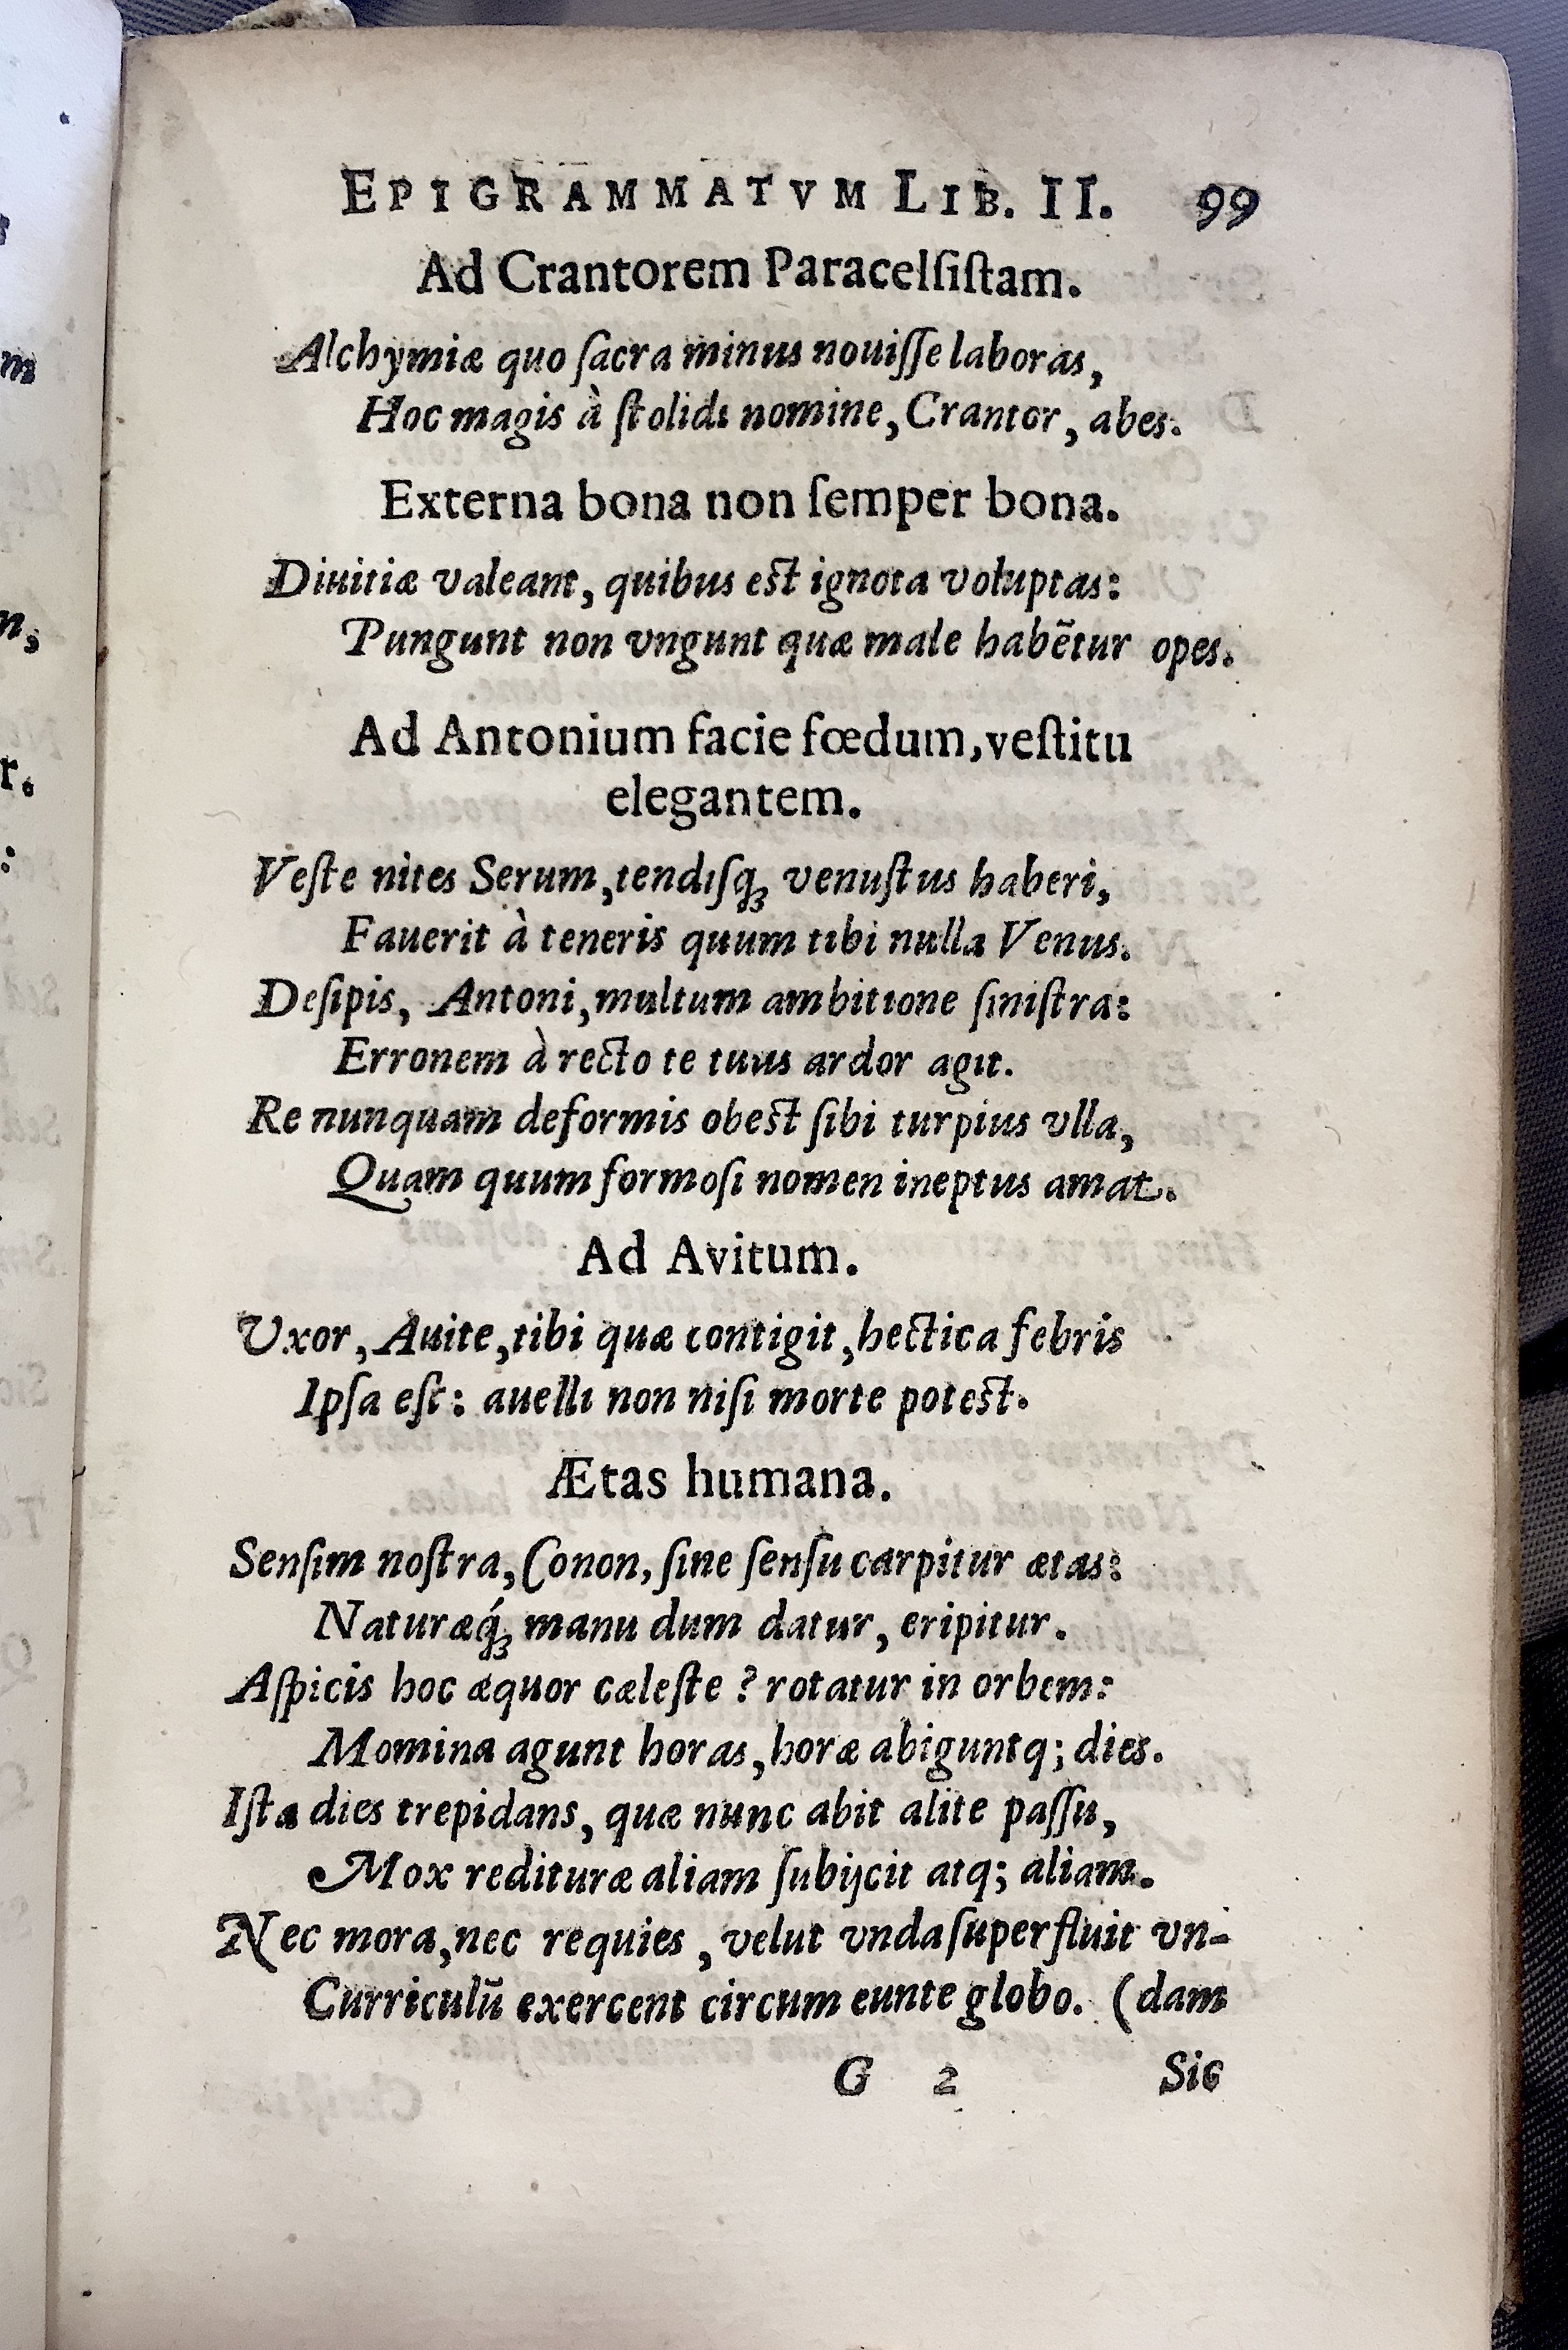 EPIGRAMMATVM LIB. II. 99
Ad Crantorem Paracelſiſtam.
Alchymiæ quo ſacra minus nouiſſe laboras,
Hoc magis à ſtolidi nomine, Crantor, abes.
Externa bona non ſemper bona.
Diuitiæ valeant, quibus est ignota voluptas:
Pungunt non vngunt quæ male habẽtur opes.
Ad Antonium facie fœdum, veſtitu
elegantem.
Veſte nites Serum, tendiſq́; venuſtus haberi,
Fauerit à teneris quum tibi nulla Venus.
Deſipis, Antoni, multum ambitione ſiniſtra:
Erronem à recto te tuus ardor agit.
Re nunquam deformis obest ſibi turpius vlla,
Quam quum formoſi nomen ineptus amat.
Ad Avitum.
Vxor, Auite, tibi quæ contigit, hectica febris
Ipſa eſt: auelli non niſi morte potest.
Ætas humana.
Senſim noſtra, Conon, ſine ſenſu carpitur ætas:
Naturæq́; manu dum datur, eripitur.
Aſpicis hoc æquor cæleſte? rotatur in orbem:
Momina agunt horas, horæ abiguntq; dies.
Iſta dies trepidans, quæ nunc abit alite paſſu,
Mox redituræ aliam ſubijcit atq; aliam.
Nec mora, nec requies, velut vnda ſuperfluit vn-
Curriculũ exercent circum eunte globo. (dam
G 2 Sic